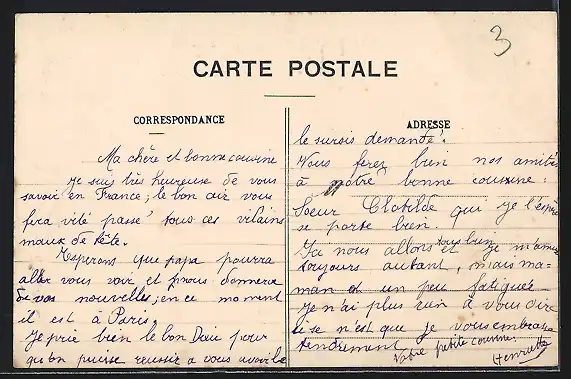 3
CARTE POSTALE
CORRESPONDANCE
Ma chère et bonne cousine
Je suis très heureuse de vous
savoir en France; le bon air vous
fera vite passé tous ces vilains
maux de tête.
Xesperons que papa pourra
aller vous voir et nous donnera
de vos nouvelles; en ce moment
il est à Paris.
Je prie bien le bon Dieu pour
qu'on puisse reussir a vous avoir le
ADRESSE
le sursis demandé.
Vous ferez bien nos amitiés
à nôtre bonne cousine
Soeur Clotilde qui je l'espère
se porte bien.
Ici nous allons tous bien
et je m'amuse
toujours autant, mais ma-
man est un peu fatiguée
Je n'ai plus rien à vous dire
si se n'est que je vous embrasse
tendrement
Votre petite cousine
Henriette